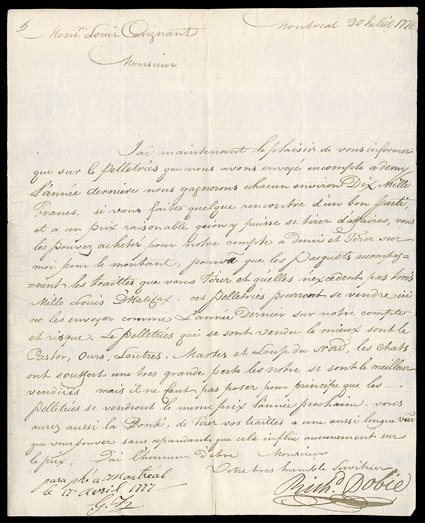 5
Monsr. Louis Carignant
Montreal 20 Juilet 1776
Monsieur
J'ai maintenant le plaisir de vous informer
que sur le pelletrées que nous avons envojé encompte a demy
l'année derniere nous gagnerons chacun environ Dix Mille
Francs. si vous faites quelque rencontre d'un bon parti
et a un prix raisonable qu'on y puisse se tirer d'affaires, vous
les pouvez acheter pour notre compte a Demis et Tirer sur
moi pour le montant, pourvu que les Pacquets accompag-
nent les traittes que vous tirer et qu'elles nexcedent pas trois
Mille Louis D'Halifax. ces pelletries pourront se vendre ici
ou les envoyer comme L'année Dernier sur notre compte
et risque. Le pelletries qui se sont vendu le mieux sont le
Castor, Ours, Loutres, Martes et Loup du Nord, les Chats
ont souffert une tres grande perte les notre se sont le meilleur
vendires mais il ne faut pas poser pour principe que les
pelletries se vendront le meme prix l'année prochain. vous
aurez aussi la Bonté, de Tirer vos traittes a une aussi longue vuë
que vous pouver sans cependant que cela influ aucunement sur
le prix. J'ai l'honneur d'etre Monsieur
Votre tres humble Serviteur
Richd. Dobie
paraphé a Montreal
le 17 Avril 1777